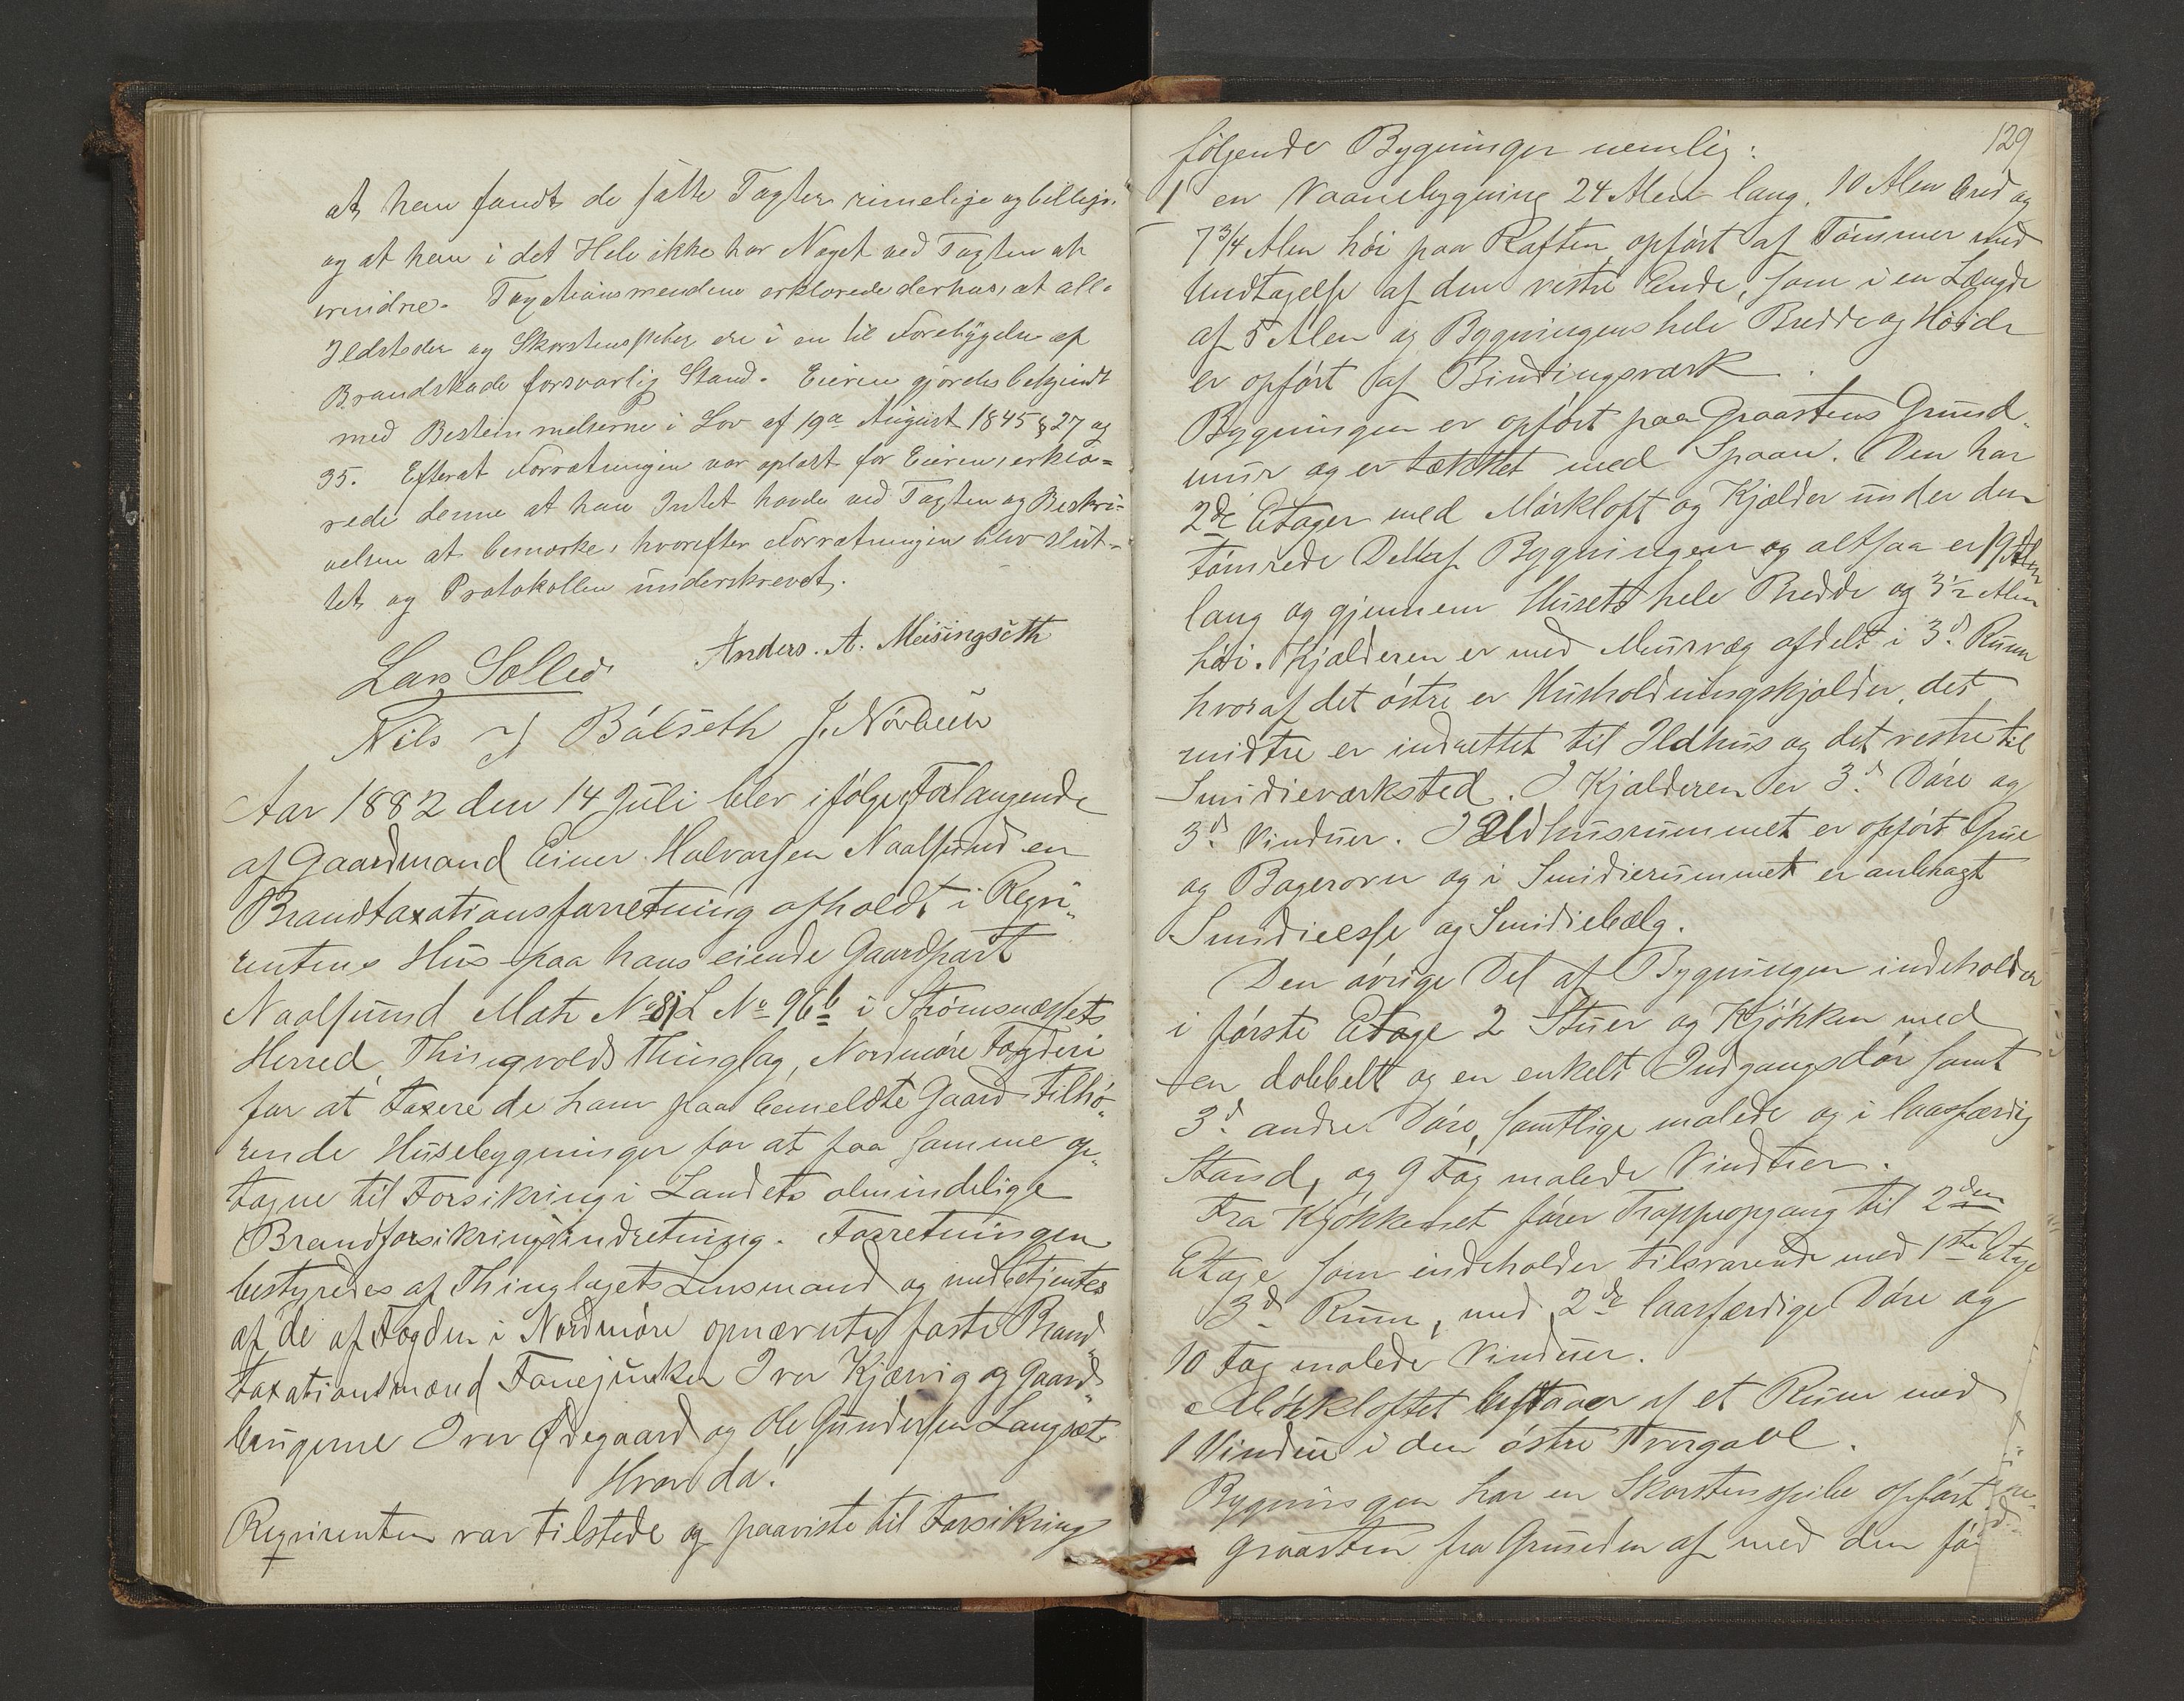 at han fandt de satte Taxter rimelige og billige
og at han i det Hele ikke har Noget ved Taxten at
erindre. Taxationsmendene erklærede derhos, at alle
Ildsteder og Skorstenspiber ere i en til Forebyggelse af
Brandskade forsvarlig Stand. Eieren gjordes bekjendt
med Bestemmelserne i Lov af 19de August 1845 § 27 og
35. Efterat Forretningen var oplæst for Eieren, erklæ-
rede denne at han Intet havde ved Taxten og Beskri-
velsen at bemærke, hvorefter Forretningen blev slut-
tet og Protokollen underskrevet.
Lars Solled Anders. A. Meisingseth
Nils J Bólseth J. Nórbech
Aar 1882 den 14 Juli blev ifølge Forlangende
af Gaardmand Einer Halvorsen Naalsund en
Brandtaxationsforretning afholdt i Reqvi„
rentens Hus paa hans eiende Gaardpart
Naalsund Matr No 81 L No 96b i Strømsnæssets
Herred, Thingvolds Thinglag, Nordmóre Fogderi
for at taxere de ham paa bemeldte Gaard tilhó„
rende Husebygninger for at faa samme op„
tagne til Forsikring i Landets almindelige
Brandforsikringsindretning. Forretningen
bestyredes af Thinglagets Lensmand og medbetjentes
af de af Fogden i Nordmóre opnævnte faste Brand„
taxationsmænd Fanejunker Iver Kjærvig og Gaard„
brugerne Iver Ødegaard og Ole Gundersen Langset
Hvor da!
Reqvirenten var tilstede og paaviste til Forsikring
129
fólgende Bygninger nemlig:
1 en Vaanebygning 24 Alen lang, 10 Alen bred og
7 3/4 Alen hói paa Raften, opfórt af Tómmer med
Undtagelse af den vestre Ende, som i en Længde
af 5 Alen og Bygningens hele Bredde og Hóide
er opfórt af Bindingsværk.
Bygningen er opfórt paa Graastens Grund„
mur og er tækket med Spaan. Den har
2de Etager med Mórkloft og Kjælder under den
tómrede Del af Bygningen og altsaa er 19 Alen
lang og gjennem Husets hele Bredde og 3 1/2 Alen
hói. Kjælderen er med Murvæg afdelt i 3d Rum
hvoraf det óstre er Husholdningskjælder, det
midtre er indrettet til Ildhus og det vestre til
Smidieværksted. I Kjælderen er 3d Dóre og
3d Vinduer. I Ildhusrummet er opfórt Grue
og Bagerovn og i Smidierummet er anbragt
Smidieesse og Smidiebælg.
Den óvrige Del af Bygningen indeholder
i fórste Etage 2 Stuer og Kjókken med
en dobbelt og en enkelt Indgangsdór samt
3d andre Dóre, samtlige malede og i laasfærdig
Stand, og 9 Fag malede Vinduer.
Fra Kjókkenet fórer Trappeopgang til 2den
Etage som indeholder tilsvarende med 1ste Etage
3d Rum, med 2de laasfærdige Dóre og
10 Fag malede Vinduer.
Mórkloftet bestaaer af et Rum med
1 Vindu i den óstre Tvergavl.
Bygningen har en Skorstenspibe opfórt
graasten fra Grunden af med den fó